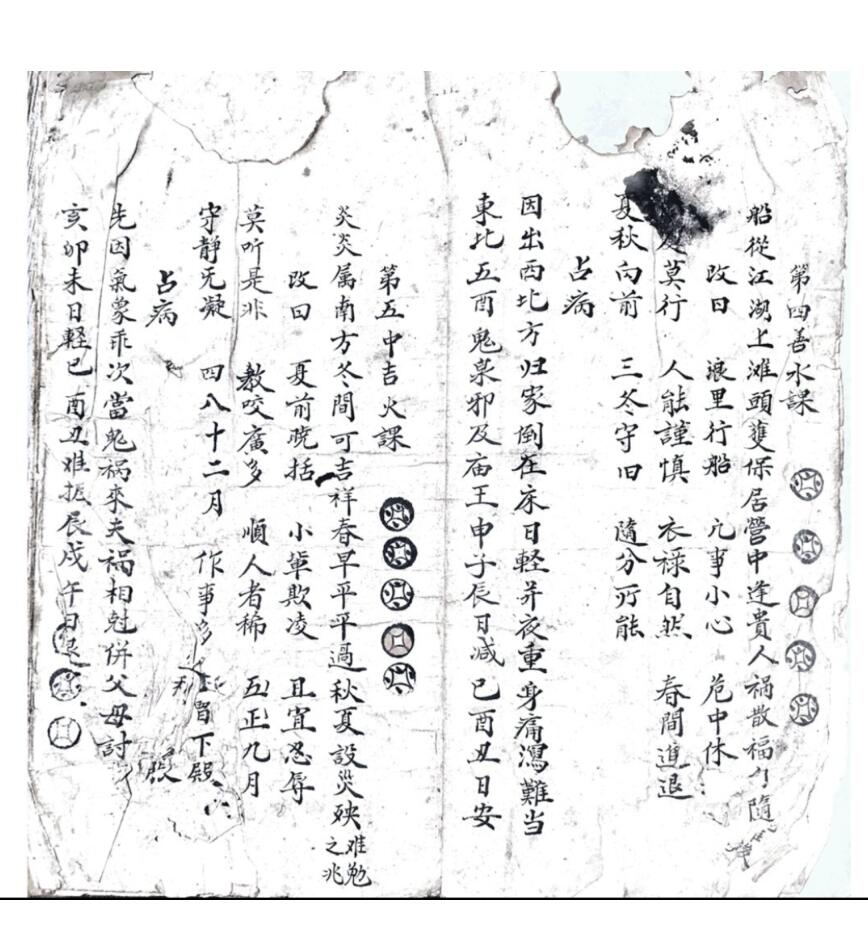 第四善水課
船從江湖上滩頭䕶保居營中逢貴人祸散福隨
改曰 浪里行船 凢事小心 危中休
莫行 人能謹慎 衣禄自然 春間進退
夏秋向前 三冬守旧 隨分所能
占病
因出西北方归家倒在床日軽并夜重身痛瀉難当
東北五酉鬼泉邪及庙王申子辰日减巳酉丑日安
第五中吉火課
炎炎属南方冬間可吉祥春早平平過秋夏設災殃 难勉之兆
改曰 夏前晓括 小軰欺凌 且宜忍辱
莫听是非 教咬廣多 順人者稀 五正九月
守静无凝 四八十二月 作事多 下殿
占病
先因氣象乖次當鬼祸來夫祸相尅併父母討
亥卯未日軽巳酉丑难抵辰戌午日